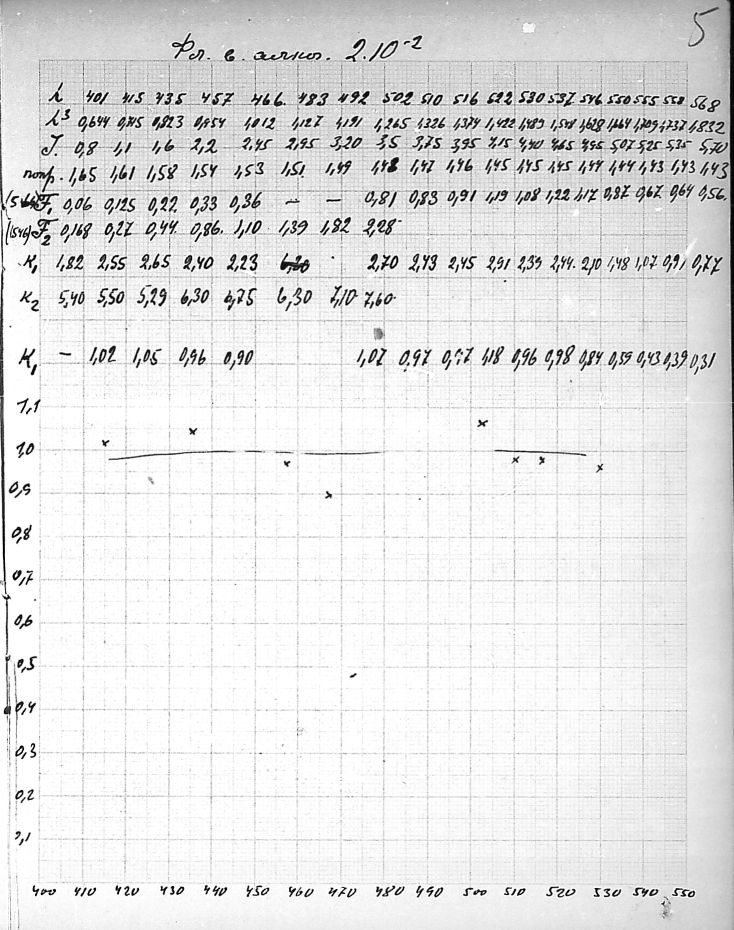 5
Фл. в. алког. 2.10⁻²
λ 401 415 435 457 466. 483 492 502 510 516 522 530 537. 546 550 555 558 568
λ³ 0,644 0,715 0,823 0,954 1,012 1,127 1,191 1,265 1,326 1,374 1,422 1,489 1,548 1,628 1,664 1,709 1,737 1,832
J. 0,8 1,1 1,6 2,2 2,45 2,95 3,20 3,5 3,75 3,95 4,15 4,40 4,65 4,95 5,07 5,25 5,35 5,70
попр. 1,65 1,61 1,58 1,54 1,53 1,51. 1,49 1,48 1,47 1,46 1,45 1,45 1,45 1,44 1,44 1,43 1,43 1,43
F₁ 0,06 0,125 0,22 0,33 0,36 — — 0,81 0,83 0,91 1,19 1,08 1,22 1,17 0,87 0,67 0,64 0,56.
(546) F₂ 0,168 0,27 0,44 0,86. 1,10 1,39 1,82 2,28
K₁ 1,82 2,55 2,65 2,40 2,23 2,70 2,43 2,45 2,91 2,39 2,44. 2,10 1,48 1,07 0,91 0,77
K₂ 5,40 5,50 5,29 6,30 6,75 6,30 7,10 7,60
K₁ — 1,02 1,05 0,96 0,90 1,07 0,97 0,97 1,18 0,96 0,98 0,84 0,59 0,43 0,39 0,31
1,1
1,0
0,9
0,8
0,7
0,6
0,5
0,4
0,3
0,2
0,1
400 410 420 430 440 450 460 470 480 490 500 510 520 530 540 550